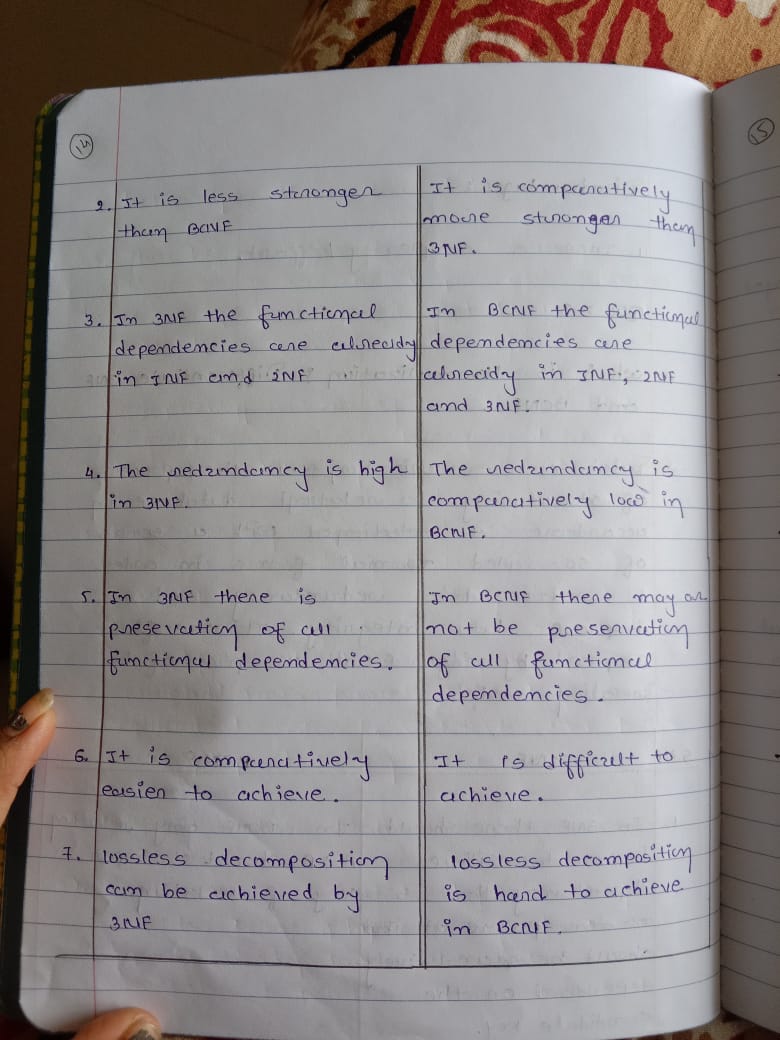 14
15
2. It is less stronger
than BCNF
It is comparatively
more stronger than
3NF.
3. In 3NF the functional
dependencies are already
in 1NF and 2NF
In BCNF the functional
dependencies are
already in 1NF, 2NF
and 3NF.
4. The redundancy is high
in 3NF.
The redundancy is
comparatively low in
BCNF.
5. In 3NF there is
presevation of all
functional dependencies.
In BCNF there may or
not be preservation
of all functional
dependencies.
6. It is comparatively
easier to achieve.
It is difficult to
achieve.
7. lossless decomposition
can be achieved by
3NF
lossless decomposition
is hard to achieve
in BCNF.